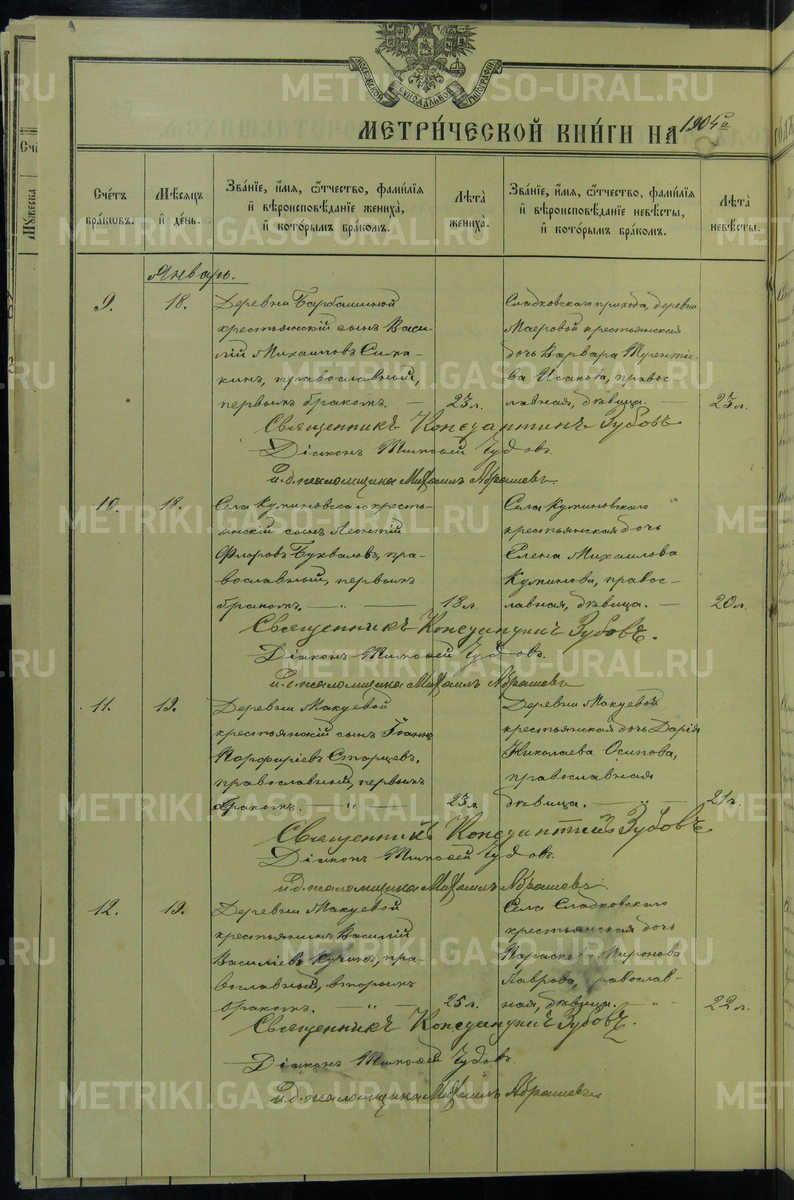 МОСКОВСКОЙ СИНОДАЛЬНОЙ ТИПОГРАФІИ
МЕТРИ́ЧЕСКОЙ КНИ́ГИ НА 1904 й
Сче́тъ бра́ковъ.
Мѣ́сяцъ и́ де́нь.
Зва́нїе, и́мя, ѻ҆́тчество, фами́лїя
и҆ вѣроисповѣ́данїе жениха̀,
и҆ кото́рымъ бра́комъ.
Лѣта̀ жениха̀.
Зва́нїе, и́мя, ѻ҆́тчество, фами́лїя
и҆ вѣроисповѣ́данїе невѣ́сты,
и҆ кото́рымъ бра́комъ.
Лѣта̀ невѣ́сты.
Январь.
9. 18. Деревни Барбашиной
крестьянскій сынъ Васи-
лій Михаиловъ Сима-
кинъ, православный,
первымъ бракомъ. — 23 л.
Сладковскаго прихода, деревни
Маеровой крестьянская
дочь Варвара Терентіе-
ва Исакова, правос-
лавная, дѣвица. — 23 л.
Священникъ Константинъ Зубовъ
Діаконъ Тимофей Чудовъ.
и. д. псаломщика Михаилъ Абрашевъ
10. 18. Села Куминовскаго кресть-
янскій сынъ Леонтій
Флоровъ Бухваловъ, пра-
вославный, первымъ
бракомъ. — " — 18 л.
Села Куминовскаго
крестьянская дочь
Елена Михаилова
Куминова, правос-
лавная, дѣвица. — 20 л.
Священникъ Константинъ Зубовъ.
Діаконъ Тимофей Чудовъ.
и. д. псаломщика Михаилъ Абрашевъ
11. 19. Деревни Макуевой
крестьянскій сынъ Іоаннъ
Порфиріевъ Старцевъ,
православный, первымъ
бракомъ. — " — 23 л.
Деревни Макуевой
крестьянская дочь Дарія
Николаева Осипова,
православная
дѣвица. — " — 21 г.
Священникъ Константинъ Зубовъ.
Діаконъ Тимофей Чудовъ.
и. д. псаломщика Михаилъ Абрашевъ
12. 19. Деревни Макуевой
крестьянинъ Василій
Василіевъ Кучинъ, пра-
вославный, вторымъ
бракомъ. — " — 25 л.
Села Сладковскаго
крестьянская дочь
Параскева Миронова
Лаврова, православ-
ная, дѣвица. — " — 22 л.
Священникъ Константинъ Зубовъ.
Діаконъ Тимофей Чудовъ.
и. д. псаломщика Михаилъ Абрашевъ
METRIKI.GASO-URAL.RU